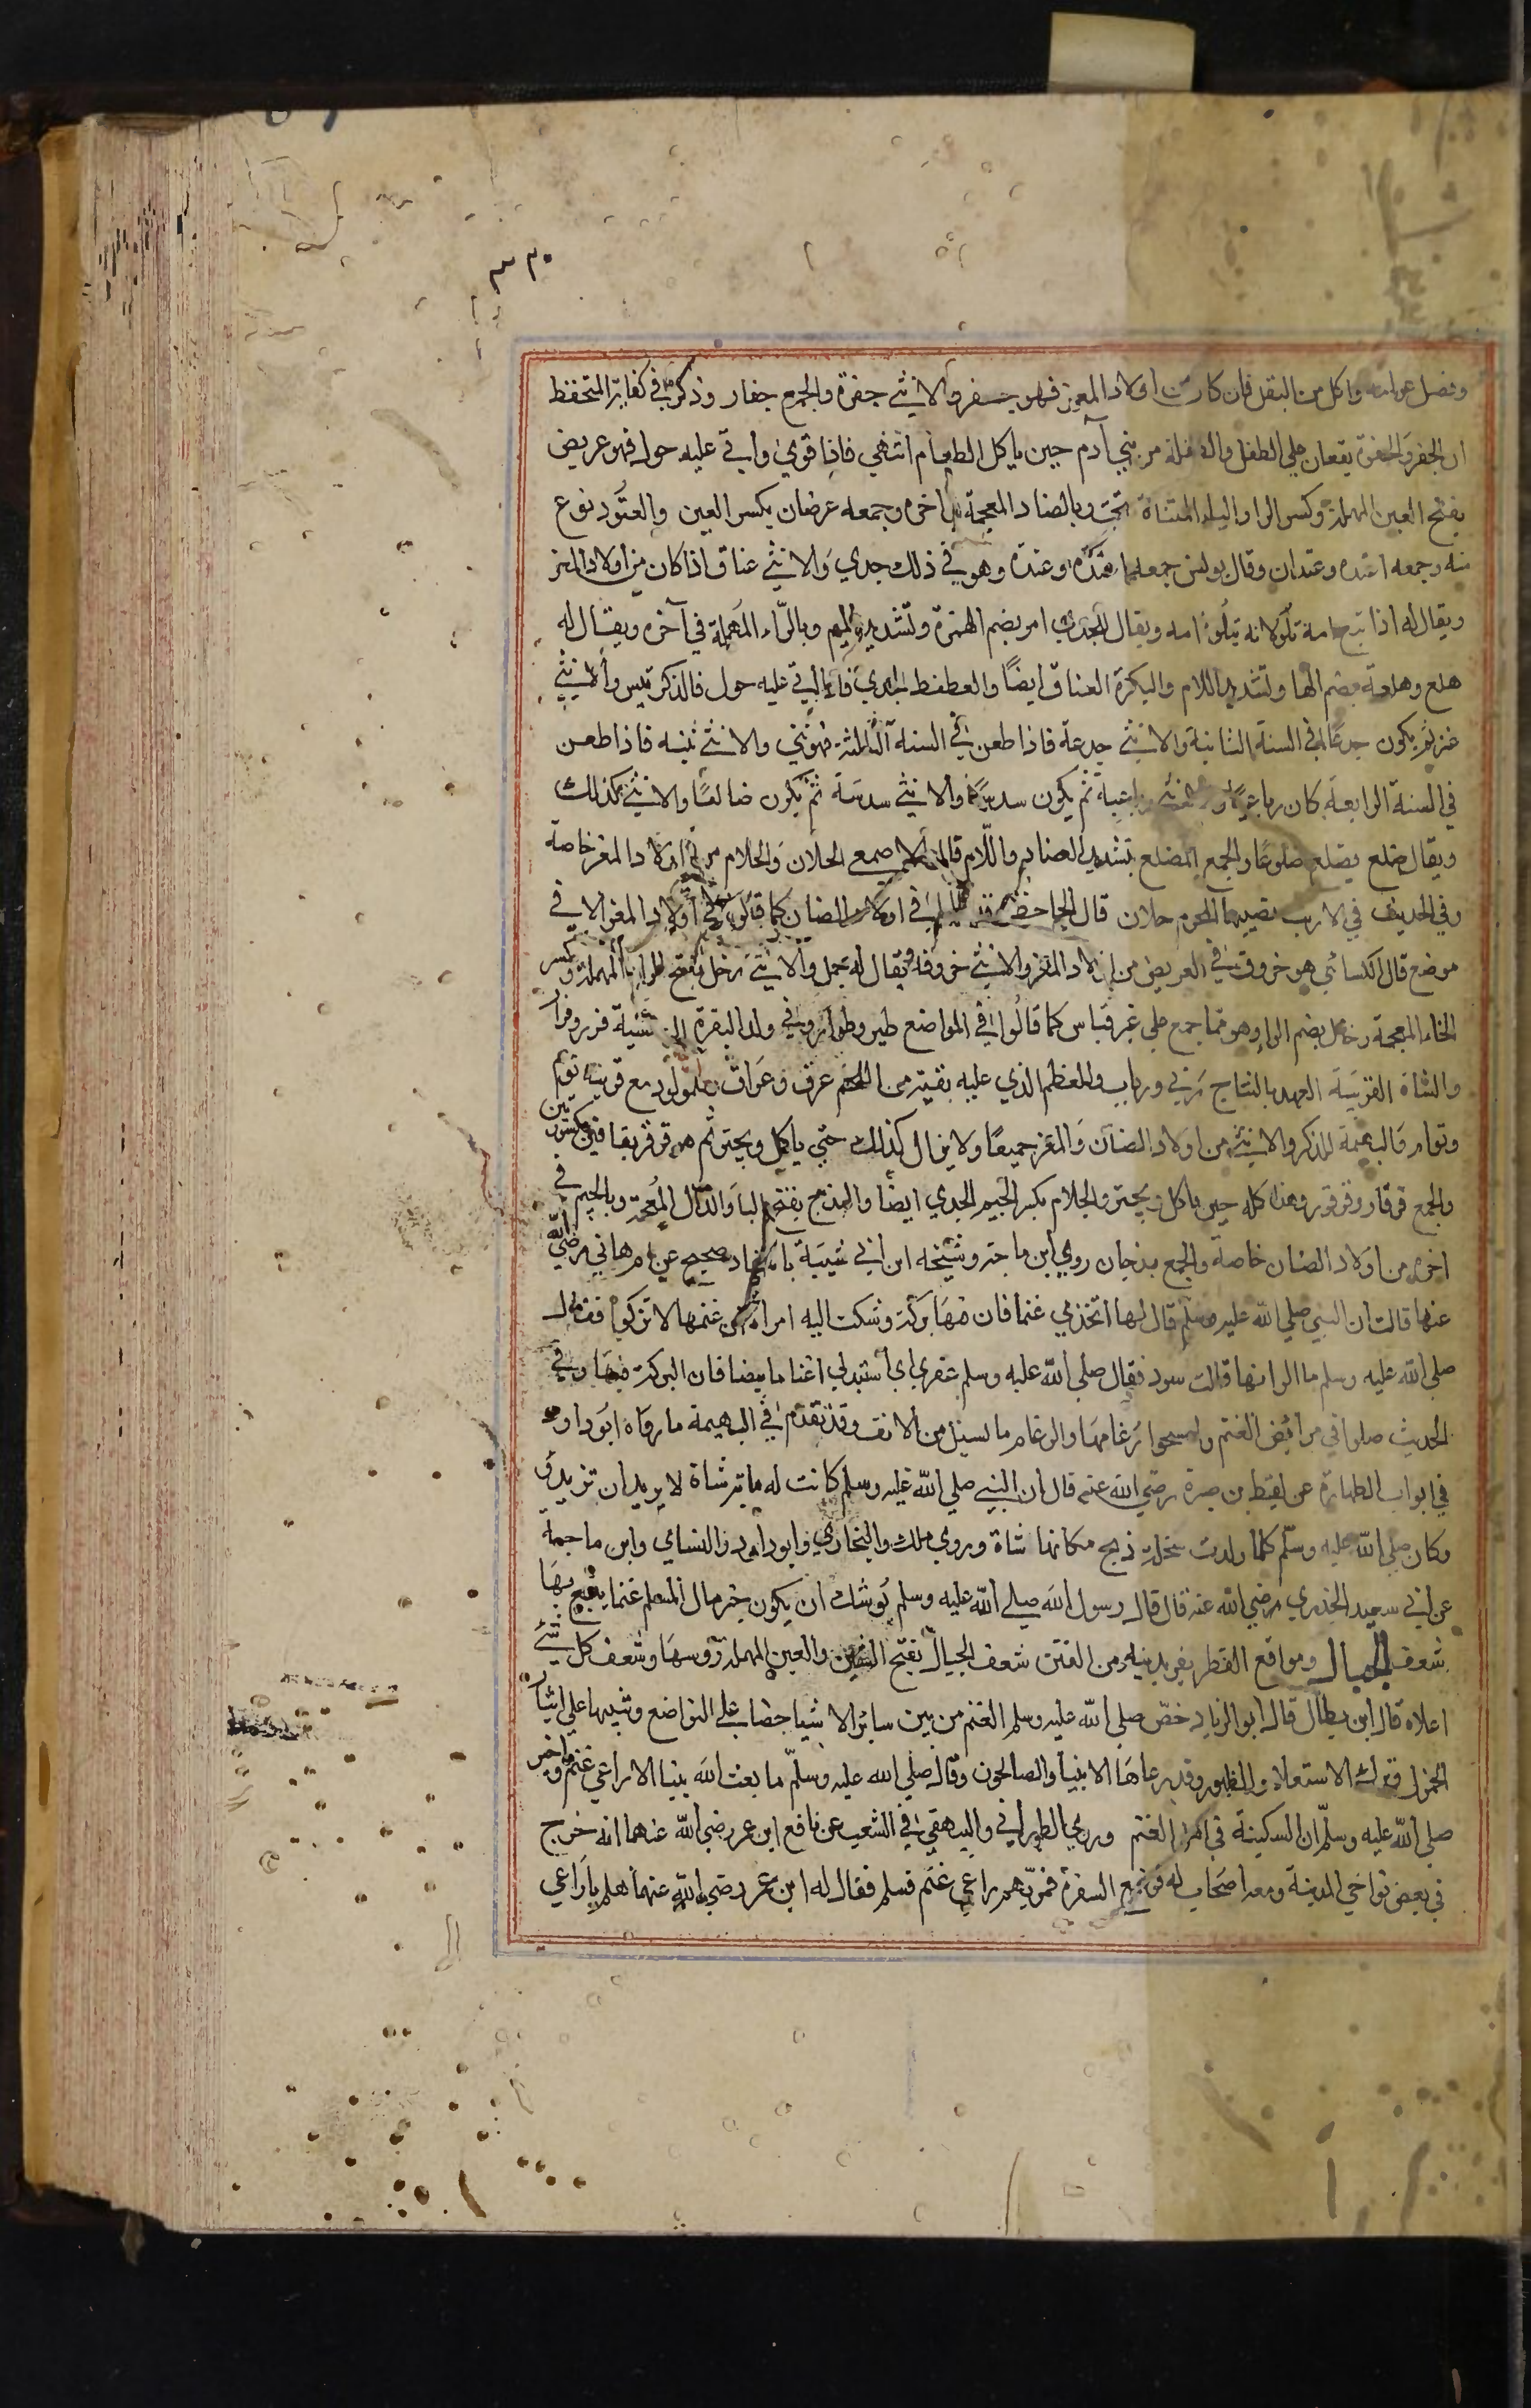 ٣٣٠
وفصل عن امه واكل من البقل فان كان من اولاد المعز فهو جفر والانثي جفرة والجمع جفار وذكر في كفاية المتحفظ
ان الجفر والجفرة يقعان علي الطفل والطفلة من بني آدم حين ياكل الطعام انتهي فاذا قوي واتي عليه حول فهو عريض
بفتح العين المهملة وكسر الرا والياء المثناة تحت وبالضاد المعجمة في اخره وجمعه عرضان بكسر العين والعتود نوع
منه وجمعه اعتده وعتدان وقال يونس جمعه اعتدة وعتدة وهو في ذلك جدي والانثي عناق اذا كان من اولاد المعز
ويقال له اذا تبع امه تلو لانه يتلو امه ويقال للجدي امر بضم الهمزة وتشديد الميم وبالراء المهملة في آخره ويقال له
هلع وهلعة بضم الها وتشديد اللام والبكرة العناق ايضا والعطعط الجدي فاذا اتي عليه حول فالذكر تيس والانثي
عنز ثم يكون جدعا في السنة الثانية والانثي جدعة فاذا طعن في السنة الثالثة فهو ثني والانثي ثنيه فاذا طعن
في السنة الرابعة كان رباعيا والانثي رباعية ثم يكون سديسا والانثي سدسة ثم يكون ضالعا والانثي كذلك
ويقال ضلع يضلع ضلوعا والجمع الضلع بتشديد الضاد واللام قال الاصمعي الحلان والحلام من اولاد المعز خاصة
وفي الحديث في الارب يصيبها المحرم حلان قال الجاحظ وقد قالوا في اولاد الضان كما قالوا في اولاد المعز الا في
موضع قال الكسائي هو خروف في العريض من اولاد المعز والانثي خروفة ويقال له حمل والانثي رخل بفتح الرا المهملة وكسر
الخاء المعجمة ورخال بضم الرا وهو مما جمع علي غير قياس كما قالوا في المراضع ظير وظوار وفي ولد البقرة الوحشية فرير وفرار
والشاة القريبة العهد بالنتاج ربي ورباب وللعظم الذي عليه بقية من اللحم عرق وعراق وللمولود مع قرينه توم
وتوام والبهمة للذكر والانثي من اولاد الضان والمعز جميعا ولا يزال كذلك حتي ياكل ويجتر ثم هو قرقر بقافين مكسورتين
والجمع قرقار وقرقور وهذا كله حين ياكل ويجتر والجلام بكسر الجيم الجدي ايضا والبذج بفتح البا والذال المعجمة وبالجيم في
اخره من اولاد الضان خاصة والجمع بذجان روي ابن ماجة وشيخه ابن ابي شيبة باسناد صحيح عن ام هاني رضي الله
عنها قالت ان النبي صلي الله عليه وسلم قال لها اتخذي غنما فان فيها بركة وشكت اليه امراة ان غنمها لا تزكوا فقال
صلي الله عليه وسلم ما الوانها قالت سود فقال صلي الله عليه وسلم عفري اي استبدلي اغناما بيضا فان البركة فيها وفي
الحديث صلوا في مرابض الغنم وامسحوا رغامها والرغام ما يسيل من الانف وقد تقدم في البهيمة ما رواه ابو داود
في ابواب الطهارة عن لقيط بن صبرة رضي الله عنه قال ان النبي صلي الله عليه وسلم كانت له ماية شاة لا يريد ان تزيد
وكان صلي الله عليه وسلم كلما ولدت سخلة ذبح مكانها شاة وروي ملك والبخاري وابو داود والنساي وابن ماجه
عن ابي سعيد الخدري رضي الله عنه قال قال رسول الله صلي الله عليه وسلم يوشك ان يكون خير مال المسلم غنما يتبع بها
شعف الجبال ومواقع القطر يفر بدينه من الفتن شعف الجبال بفتح الشين والعين المهملة روسها وشعف كل شي
اعلاه قال ابن بطال قال ابو الزناد خص صلي الله عليه وسلم الغنم من بين ساير الاشيا حضا علي التواضع وتنبيها علي ايثار
الخمول وترك الاستعلا والظهور وقد رعاها الانبيا والصالحون وقال صلي الله عليه وسلم ما بعث الله نبيا الا راعي غنم واخبر
صلي الله عليه وسلم ان السكينة في اهل الغنم وروي الطبراني والبيهقي في الشعب عن نافع ابن عمر رضي الله عنهما انه خرج
في بعض نواحي المدينة ومعه اصحاب له فوضع السفرة فمر بهم راعي غنم فسلم فقال له ابن عمر رضي الله عنهما هلم يا راعي